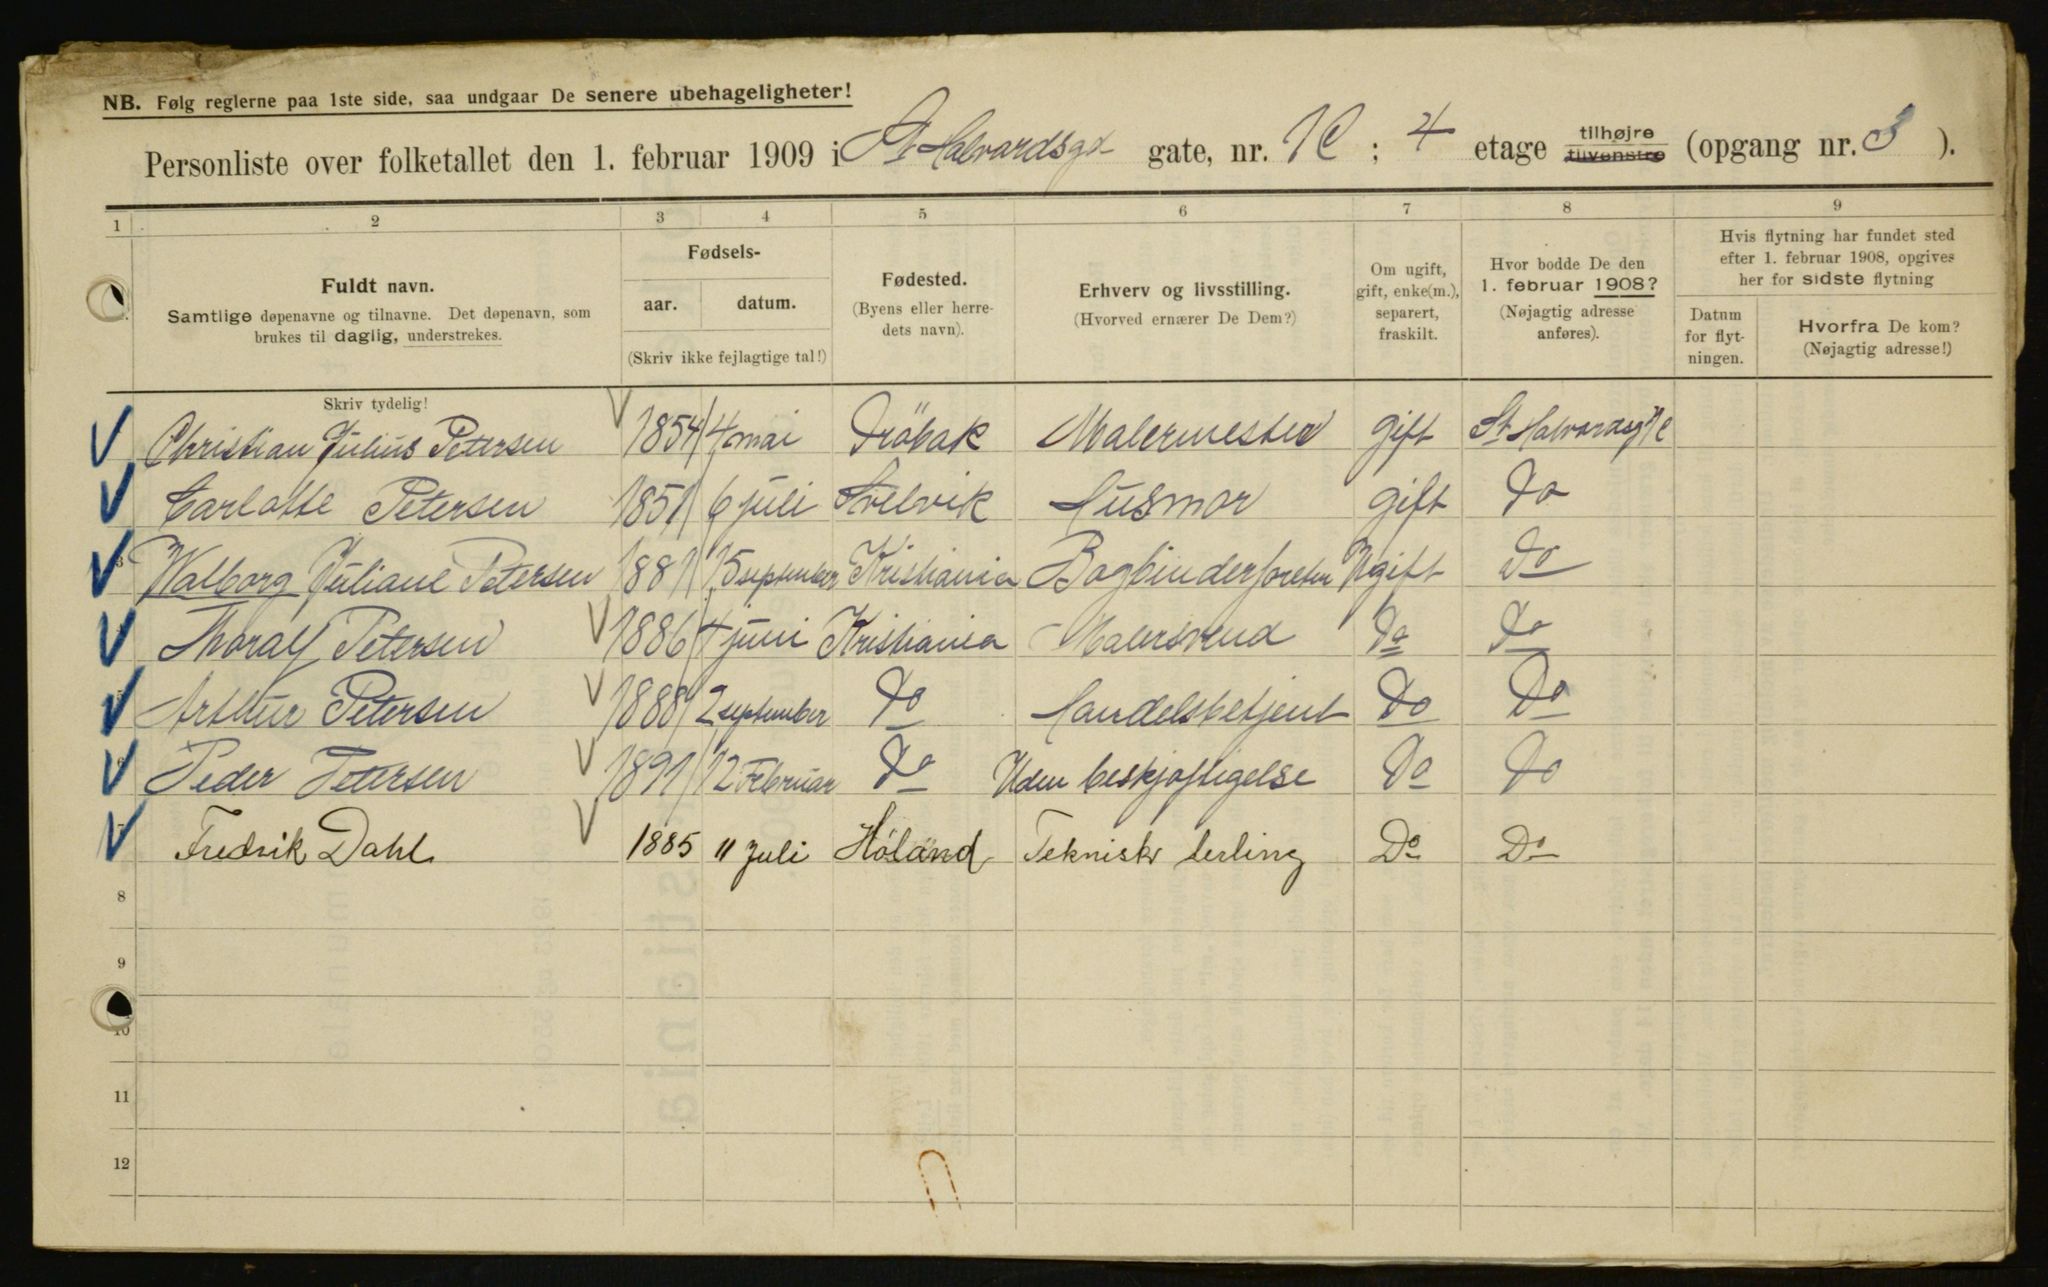 NB. Følg reglerne paa 1ste side, saa undgaar De senere ubehageligheter!
Personliste over folketallet den 1. februar 1909 i St Halvardsgt gate, nr. 1C ; 4 etage tilhøjre tilvenstre (opgang nr. 3 ).
1 2 3 4 5 6 7 8 9
Fuldt navn.
Samtlige døpenavne og tilnavne. Det døpenavn, som
brukes til daglig, understrekes.
Fødsels-
aar. datum.
(Skriv ikke fejlagtige tal!)
Fødested.
(Byens eller herre-
dets navn).
Erhverv og livsstilling.
(Hvorved ernærer De Dem?)
Om ugift,
gift, enke(m.),
separert,
fraskilt.
Hvor bodde De den
1. februar 1908?
(Nøjagtig adresse
anføres).
Hvis flytning har fundet sted
efter 1. februar 1908, opgives
her for sidste flytning
Datum
for flyt-
ningen.
Hvorfra De kom?
(Nøjagtig adresse!)
Skriv tydelig!
Christian Julius Petersen 1854 4 mai Dröbak Malermester gift St Halvardsg 1c
Carlotte Petersen 1851 6 juli Svelvik Husmor gift Do
Walborg Juliane Petersen 1881 15 september Kristiania Bogbinderforetn Ugift Do
Thoralf Petersen 1886 4 juni Kristiania Malersvend Do Do
Arthur Petersen 1888 2 september Do Handelsbetjent Do Do
Peder Petersen 1891 12 Februar Do Uden beskjæftigelse Do Do
Fredrik Dahl 1885 11 Juli Höland Teknisk lerling Do Do
8
9
10
11
12